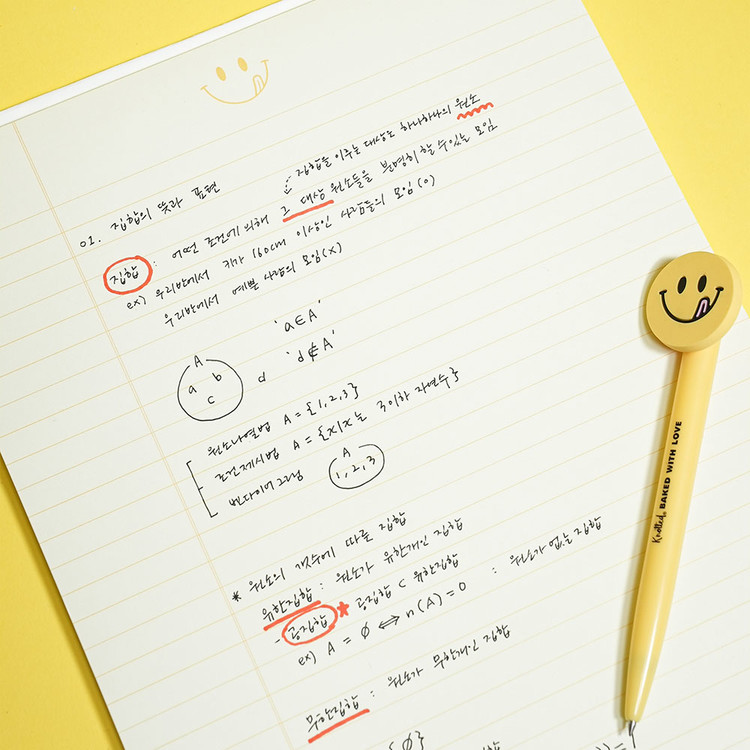 01. 집합의 뜻과 표현
집합을 이루는 대상은 하나하나의 원소
집합 : 어떤 조건에 의해 그 대상 원소들을 분명히 할 수 있는 모임
ex) 우리반에서 키가 160cm 이상인 사람들의 모임(o)
우리반에서 예쁜 사람의 모임(x)
'a∈A'
A
a b
c
d 'd∉A'
원소나열법 A = {1, 2, 3}
조건제시법 A = {x|x는 3이하 자연수}
벤다이어그램
A
1, 2, 3
* 원소의 갯수에 따로 집합
유한집합 : 원소가 유한개인 집합
- 공집합 * 공집합 ⊂ 유한집합
ex) A = ∅ ⇔ n(A) = 0 : 원소가 없는 집합
무한집합 : 원소가 무한개인 집합
{∅}
Knotted. BAKED WITH LOVE